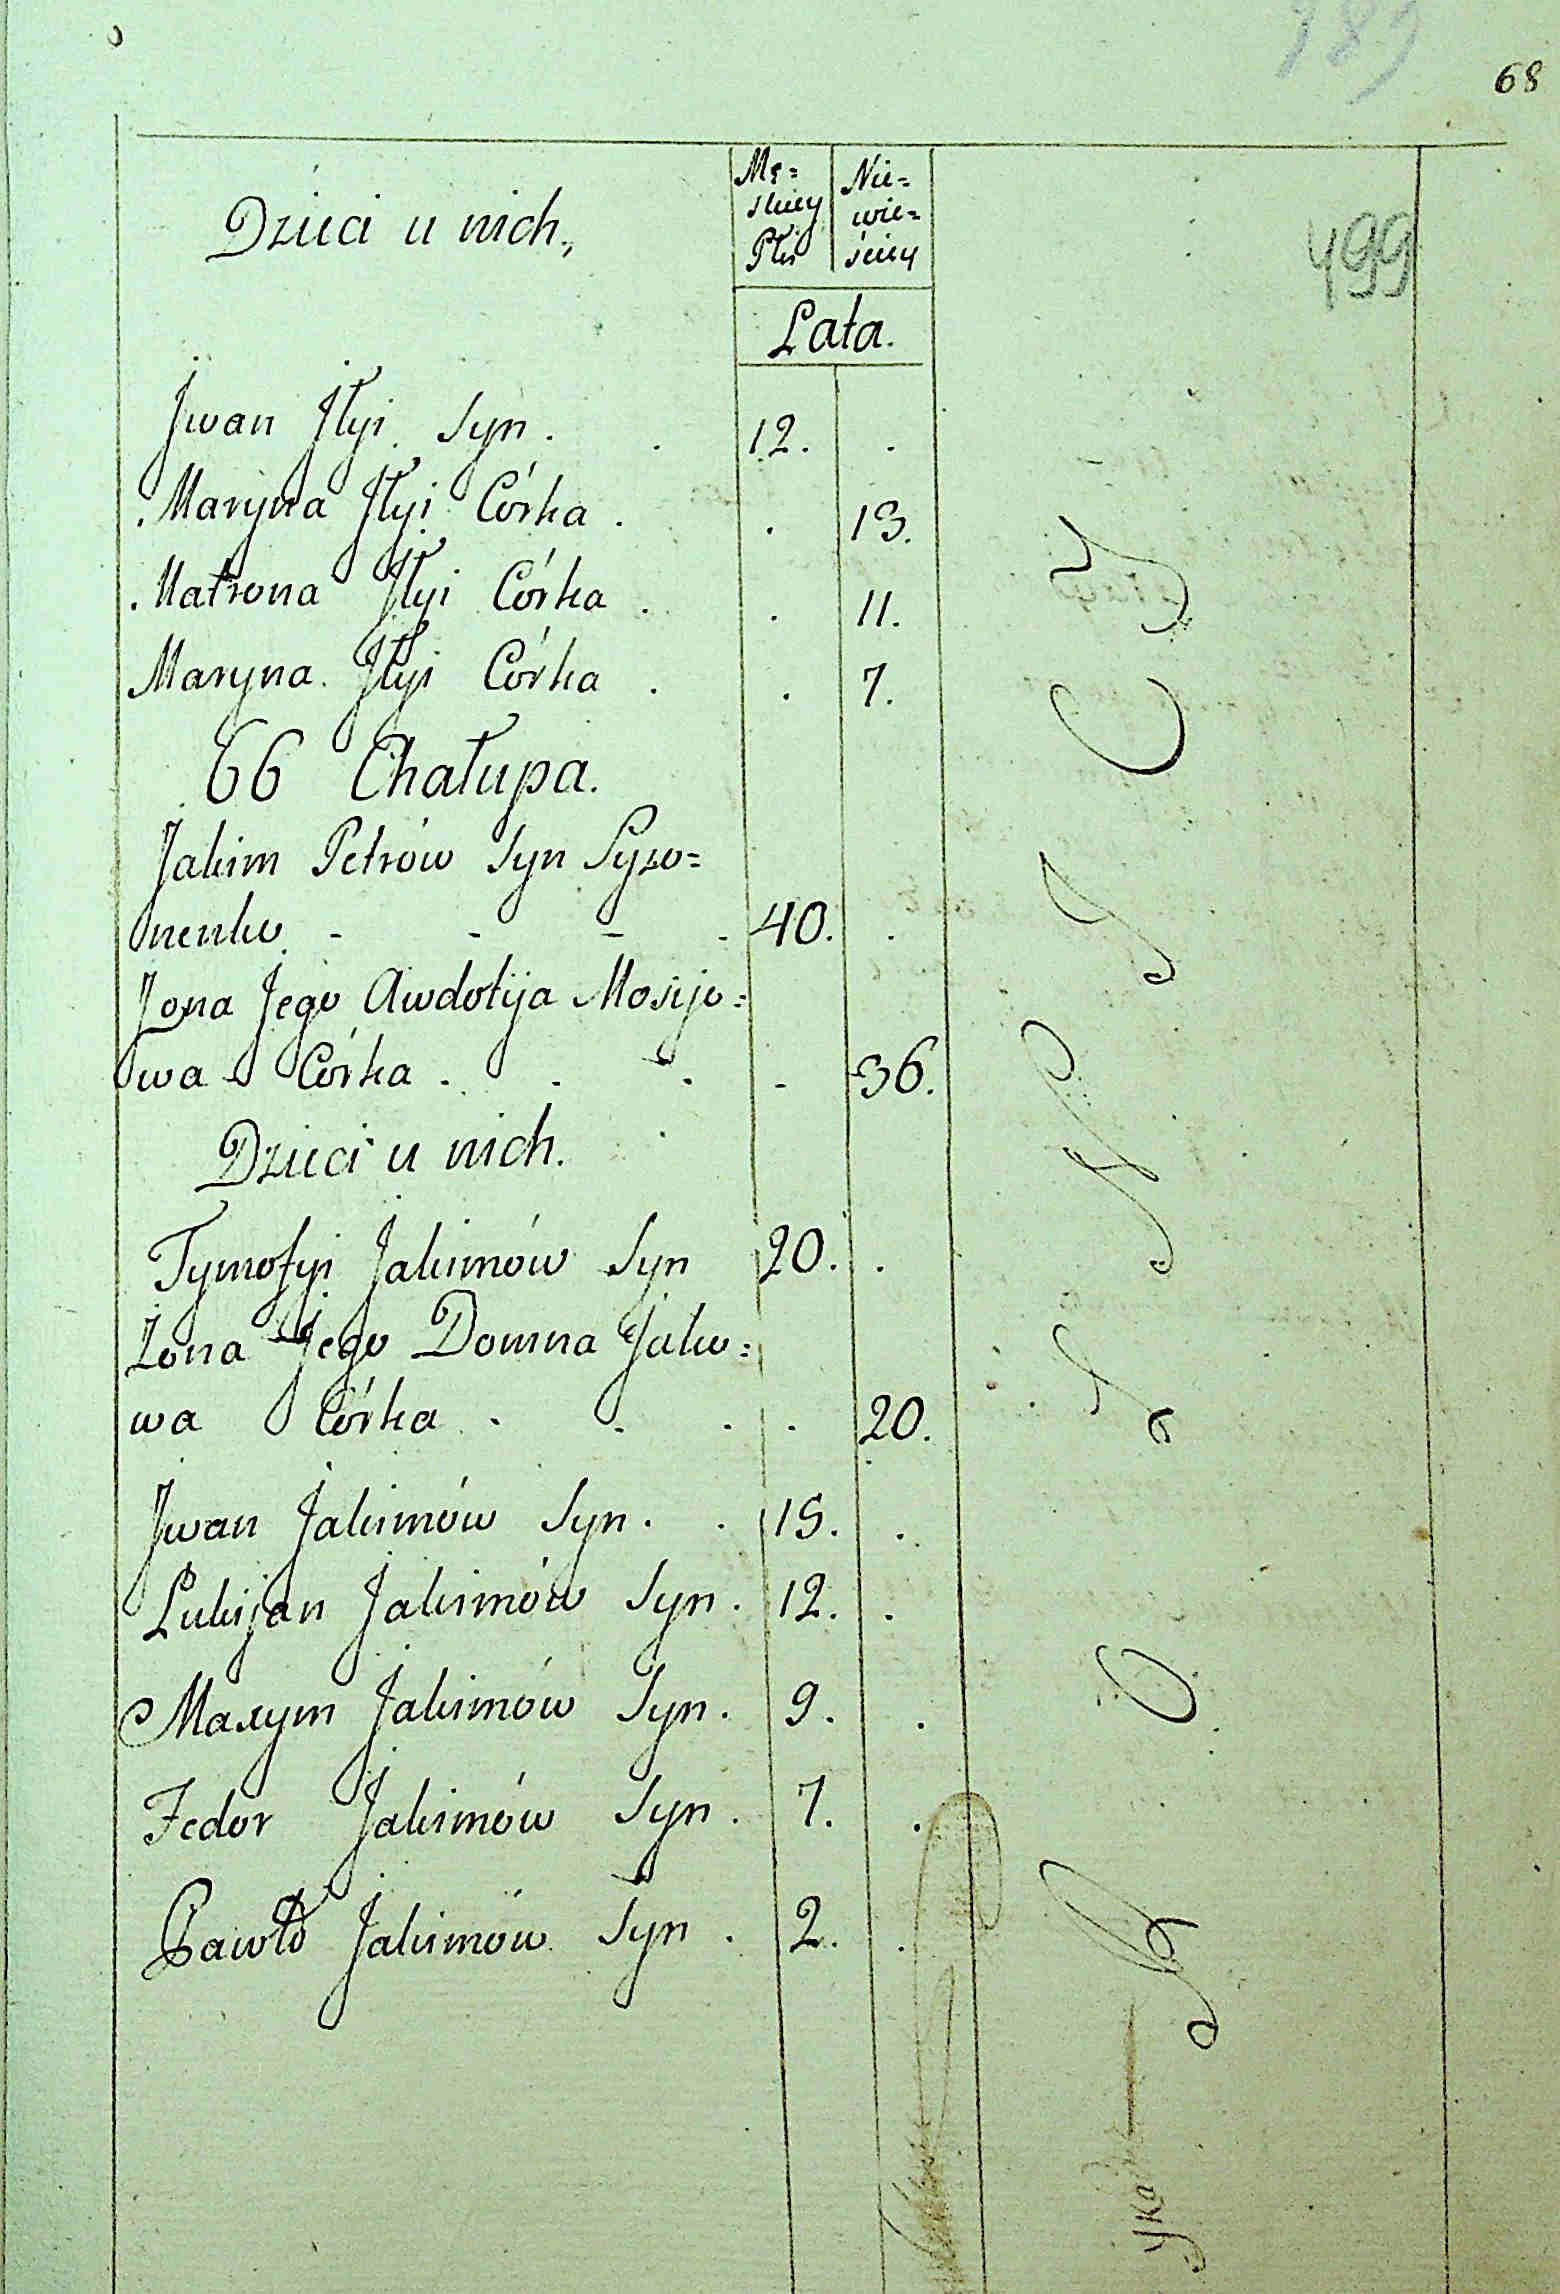 68
499
Dzieci u nich,
Mę=
skiey
Płci
Nie=
wie=
ściey
Lata.
Jwan Jłyi Syn . . 12. .
Maryna Jłyi Córka . . 13.
Matrona Jłyi Córka . . 11.
Maryna Jłyi Córka . . 7.
66 Chałupa.
Jakim Petrów Syn Syzo=
nenko - - - . 40. .
Żona Jego Awdotija Mosijo=
wa Córka . . . - 36.
Dzieci u nich.
Tymofyi Jakimów Syn 20. .
Żona Jego Domna Jako=
wa Córka . . . . 20.
Jwan Jakimów Syn . . 15. .
Lukijan Jakimów Syn . 12. .
Maxym Jakimów Syn . 9. .
Fedor Jakimów Syn . 7. .
Pawło Jakimów Syn . 2. .